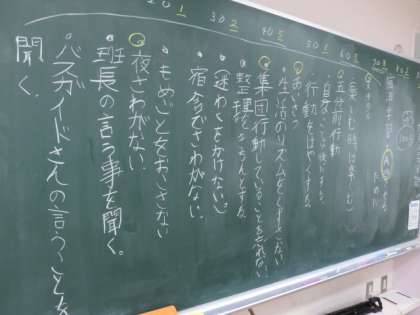 (楽しむ時は楽しむ)
五分前行動
行動をはやくする。
あいさつ
生活のリズムをくずさない
集団行動していることを忘れない
整理をきちんとする。
(迷わくをかけない。)
宿舎でさわがない。
もめごとをおこさない
夜さわがない。
班長の言う事を聞く。
バスガイドさんの言うことを
聞く。